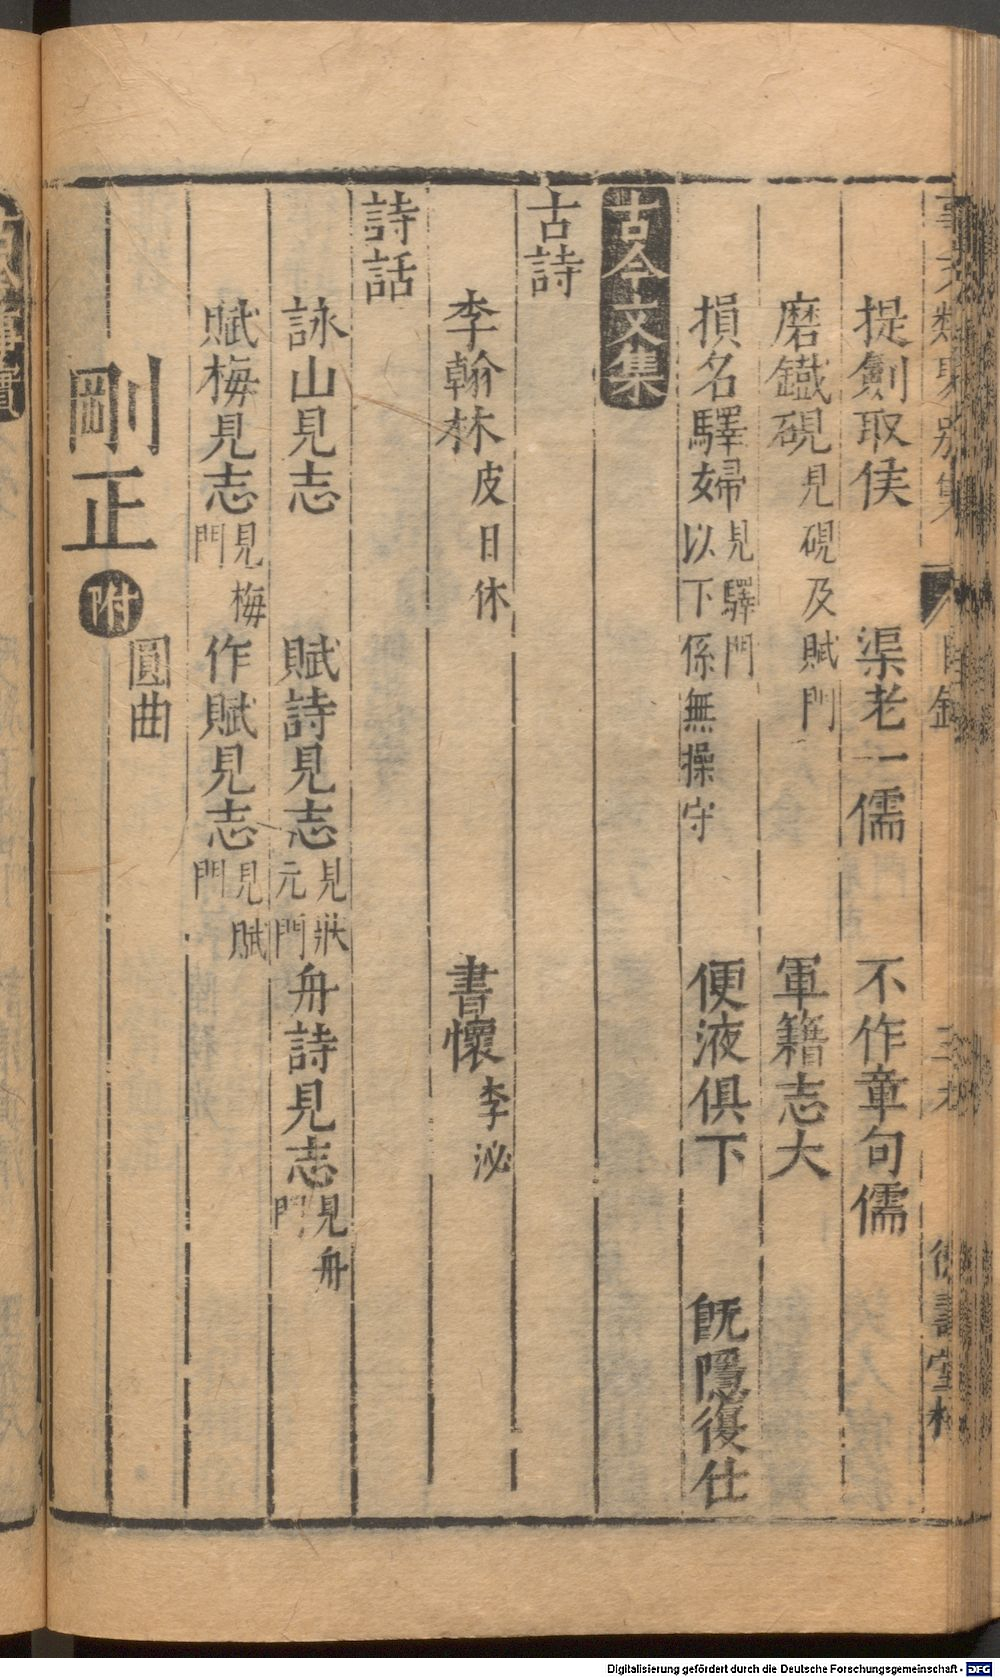 提劍取侯 渠老一儒 不作章句儒
磨鐵硯 見硯及賦門 軍籍志大
損名驛婦 見驛門以下係無操守 便液俱下 旣隱復仕
古今文集
古詩
李翰林 皮日休 書懷 李泌
詩話
詠山見志 賦詩見志 見狀元門 舟詩見志 見舟門
賦梅見志 見梅門 作賦見志 見賦門
剛正 附 圓曲
Digitalisierung gefördert durch die Deutsche Forschungsgemeinschaft - DFG